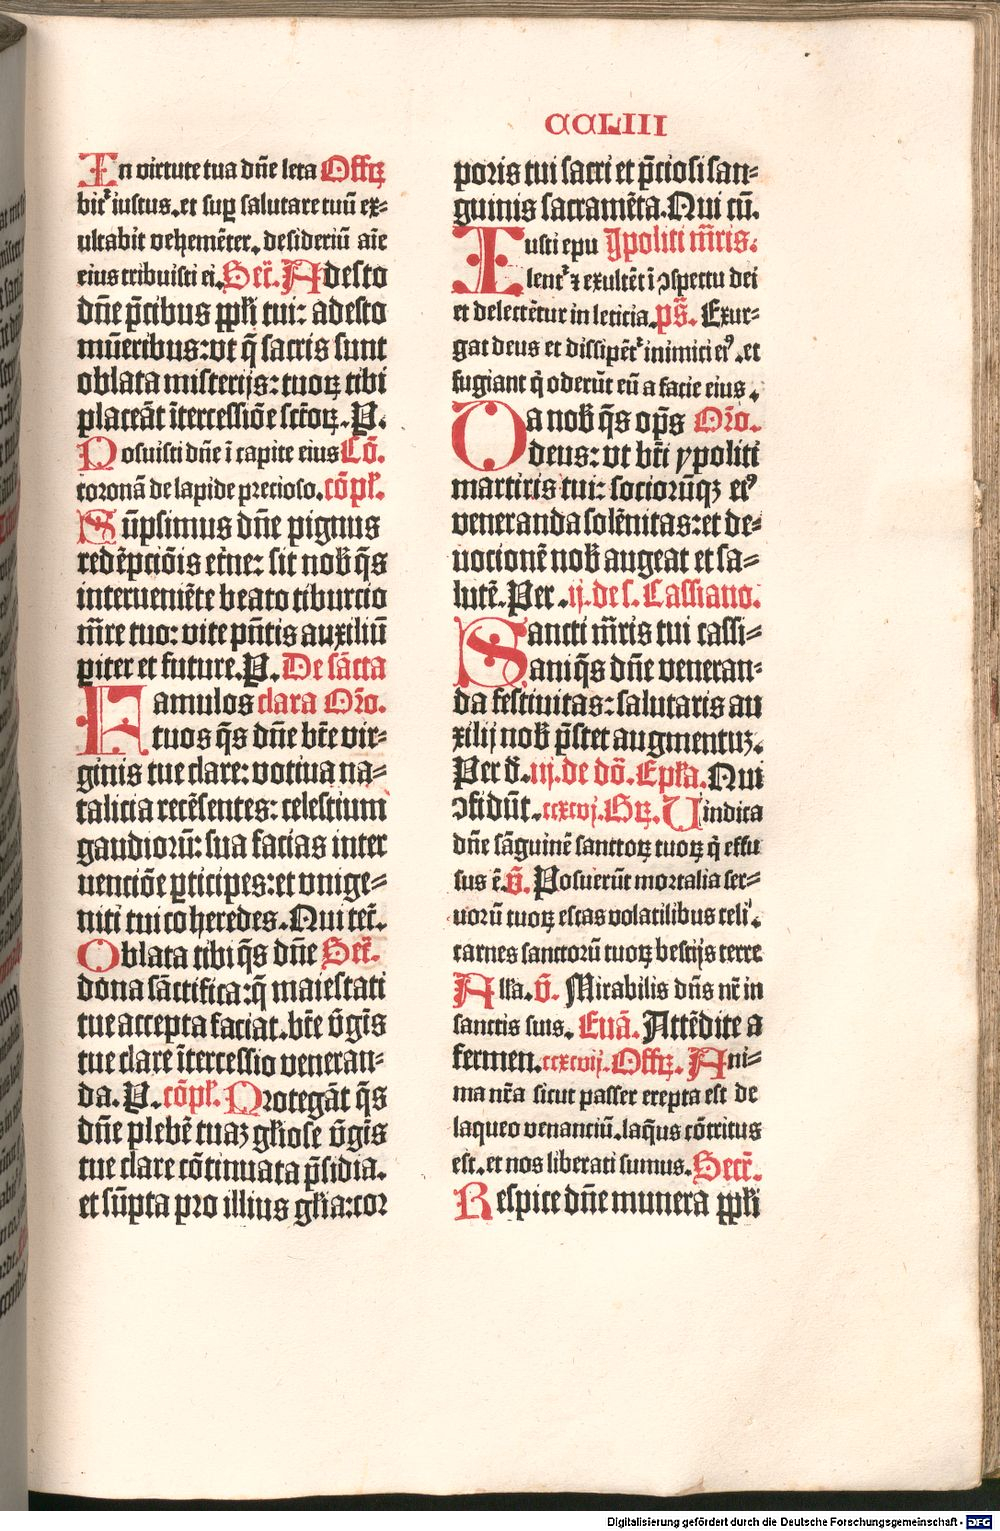 CCLIII
In virtute tua dñe leta Offꝝ
bit᷑ iustus .et sup̲ salutare tuũ ex⸗
ultabit vehemẽter. desideriũ aĩe
eius tribuisti ei. Secr̃. Adesto
dñe p̃cibus ppl̃i tui: adesto
mũeribus: vt q̃ sacris sunt
oblata misterijs: tuoꝝ tibi
placeãt ĩtercessiõe sctõꝝ. P.
Posuisti dñe ĩ capite eius Cõ.
coronã de lapide precioso. cõpl̃.
Sũpsimus dñe pignus
redẽpciõis etẽne: sit nob̃ q̃s
interueniẽte beato tiburcio
m̃re tuo: vite pñtis auxiliũ
piter et future. P. De sãcta
Famulos clara Orõ.
tuos q̃s dñe btẽ vir⸗
ginis tue clare: votiua na⸗
talicia recẽsentes: celestium
gaudiorũ: sua facias inter
uenciõe p̲ticipes: et vnige⸗
niti tui coheredes. Qui tec̃.
Oblata tibi q̃s dñe Secr̃.
dona sãctifica: q̃ maiestati
tue accepta faciat. btẽ v̾gĩs
tue clare ĩtercessio veneran⸗
da. P. cõpl̃. Protegãt q̃s
dñe plebẽ tuaꝫ gl̃iose v̾gĩs
tue clare cõtinuata p̃sidia.
et sũpta pro illius gl̃ia: cor
poris tui sacri et p̃ciosi san⸗
guinis sacramẽta. Qui cũ.
Iusti epu Ypoliti m̃ris.
lent᷑ ⁊ exultẽt ĩ ↄspectu dei
et delectẽtur in leticia. ps̃. Exur⸗
gat deus et dissipẽt᷑ inimici eiꝰ .et
fugiant q̇ oderũt eũ a facie eius .
Da nob̃ q̃s op̃s Orõ.
deus: vt bt̃i ypoliti
martiris tui: sociorũqꝫ eiꝰ
veneranda solẽnitas: et de⸗
uocionẽ nob̃ augeat et sa⸗
lutẽ. Per .ij. de s. Cassiano.
Sancti m̃ris tui cassi⸗
ani q̃s dñe veneran⸗
da festiuitas: salutaris au
xilij nob̃ p̃stet augmentuꝫ.
Per d̃. iij. de dõ. Epl̃a. Qui
ↄfidũt. ccxcvj. Grꝝ. Uindica
dñe sãguinẽ sanctoꝝ tuoꝝ q̇ effu
sus ẽ. v̾. Posuerũt mortalia ser⸗
uorũ tuoꝝ escas volatilibus celi᷑.
carnes sanctorũ tuoꝝ bestijs terre
Alla. v̾. Mirabilis dñs nr̃ in
sanctis suis. Euã. Attẽdite a
fermen. ccxcvij. Offꝝ. Ani⸗
ma nr̃a sicut passer erepta est de
laqueo venanciũ. laq̃us cõtritus
est. et nos liberati sumus. Secr̃.
Respice dñe munera ppl̃i
Digitalisierung gefördert durch die Deutsche Forschungsgemeinschaft - DFG